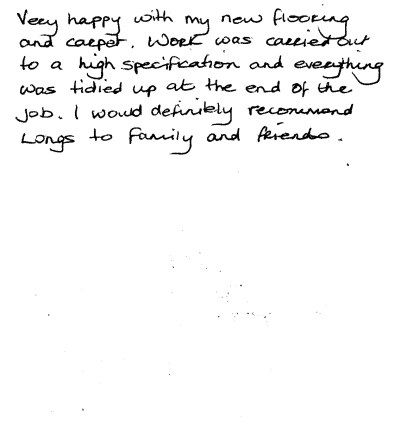 Very happy with my new flooring
and carpet. Work was carried out
to a high specification and everything
was tidied up at the end of the
job. I would definitely recommend
Longs to family and friends.